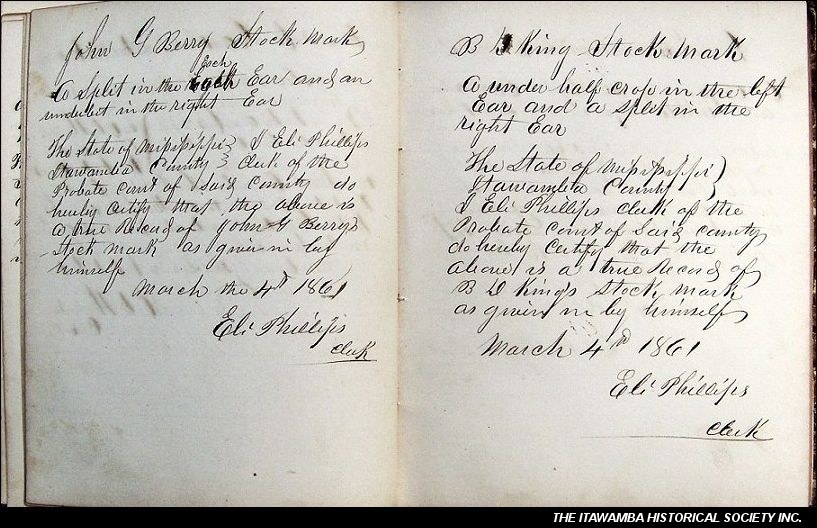 John G Berry Stock Mark
Each
A Split in the Ear and an
underbit in the right Ear
The State of Mississippi } I Eli Phillips
Itawamba County } Clerk of the
Probate Court of Said County do
hereby Certify that the above is
a true Record of John G Berry's
Stock mark as given in by
himself
March the 4th 1861
Eli Phillips
Clerk
B D King Stock Mark
A under half crop in the left
Ear and a Split in the
right Ear
The State of Mississippi }
Itawamba County }
I Eli Phillips clerk of the
Probate court of Said county
do hereby Certify that the
above is a true Record of
B D King's Stock mark
as given in by himself
March 4th 1861
Eli Phillips
Clerk
THE ITAWAMBA HISTORICAL SOCIETY INC.